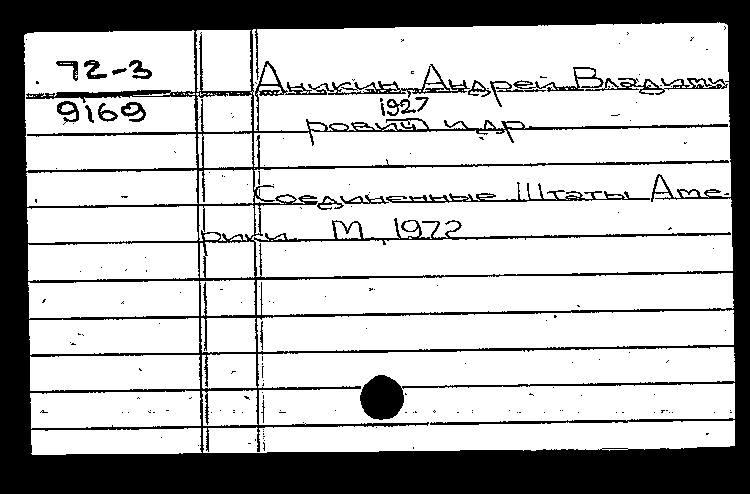 72-3
9169
Аникин, Андрей Владими
1927
рович и др.
Соединенные Штаты Аме-
рики. М., 1972